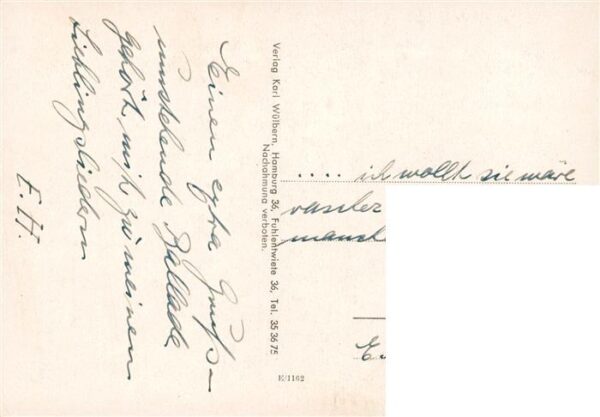 Einen extra Gruß –
umstehende Ballade
gehört mit zu meinen
Lieblingsliedern
E. H.
Verlag Karl Wülbern, Hamburg 36, Fuhlentwiete 36, Tel. 35 36 75
Nachahmung verboten.
.... ich wollt sie wäre
rascher
E/1162